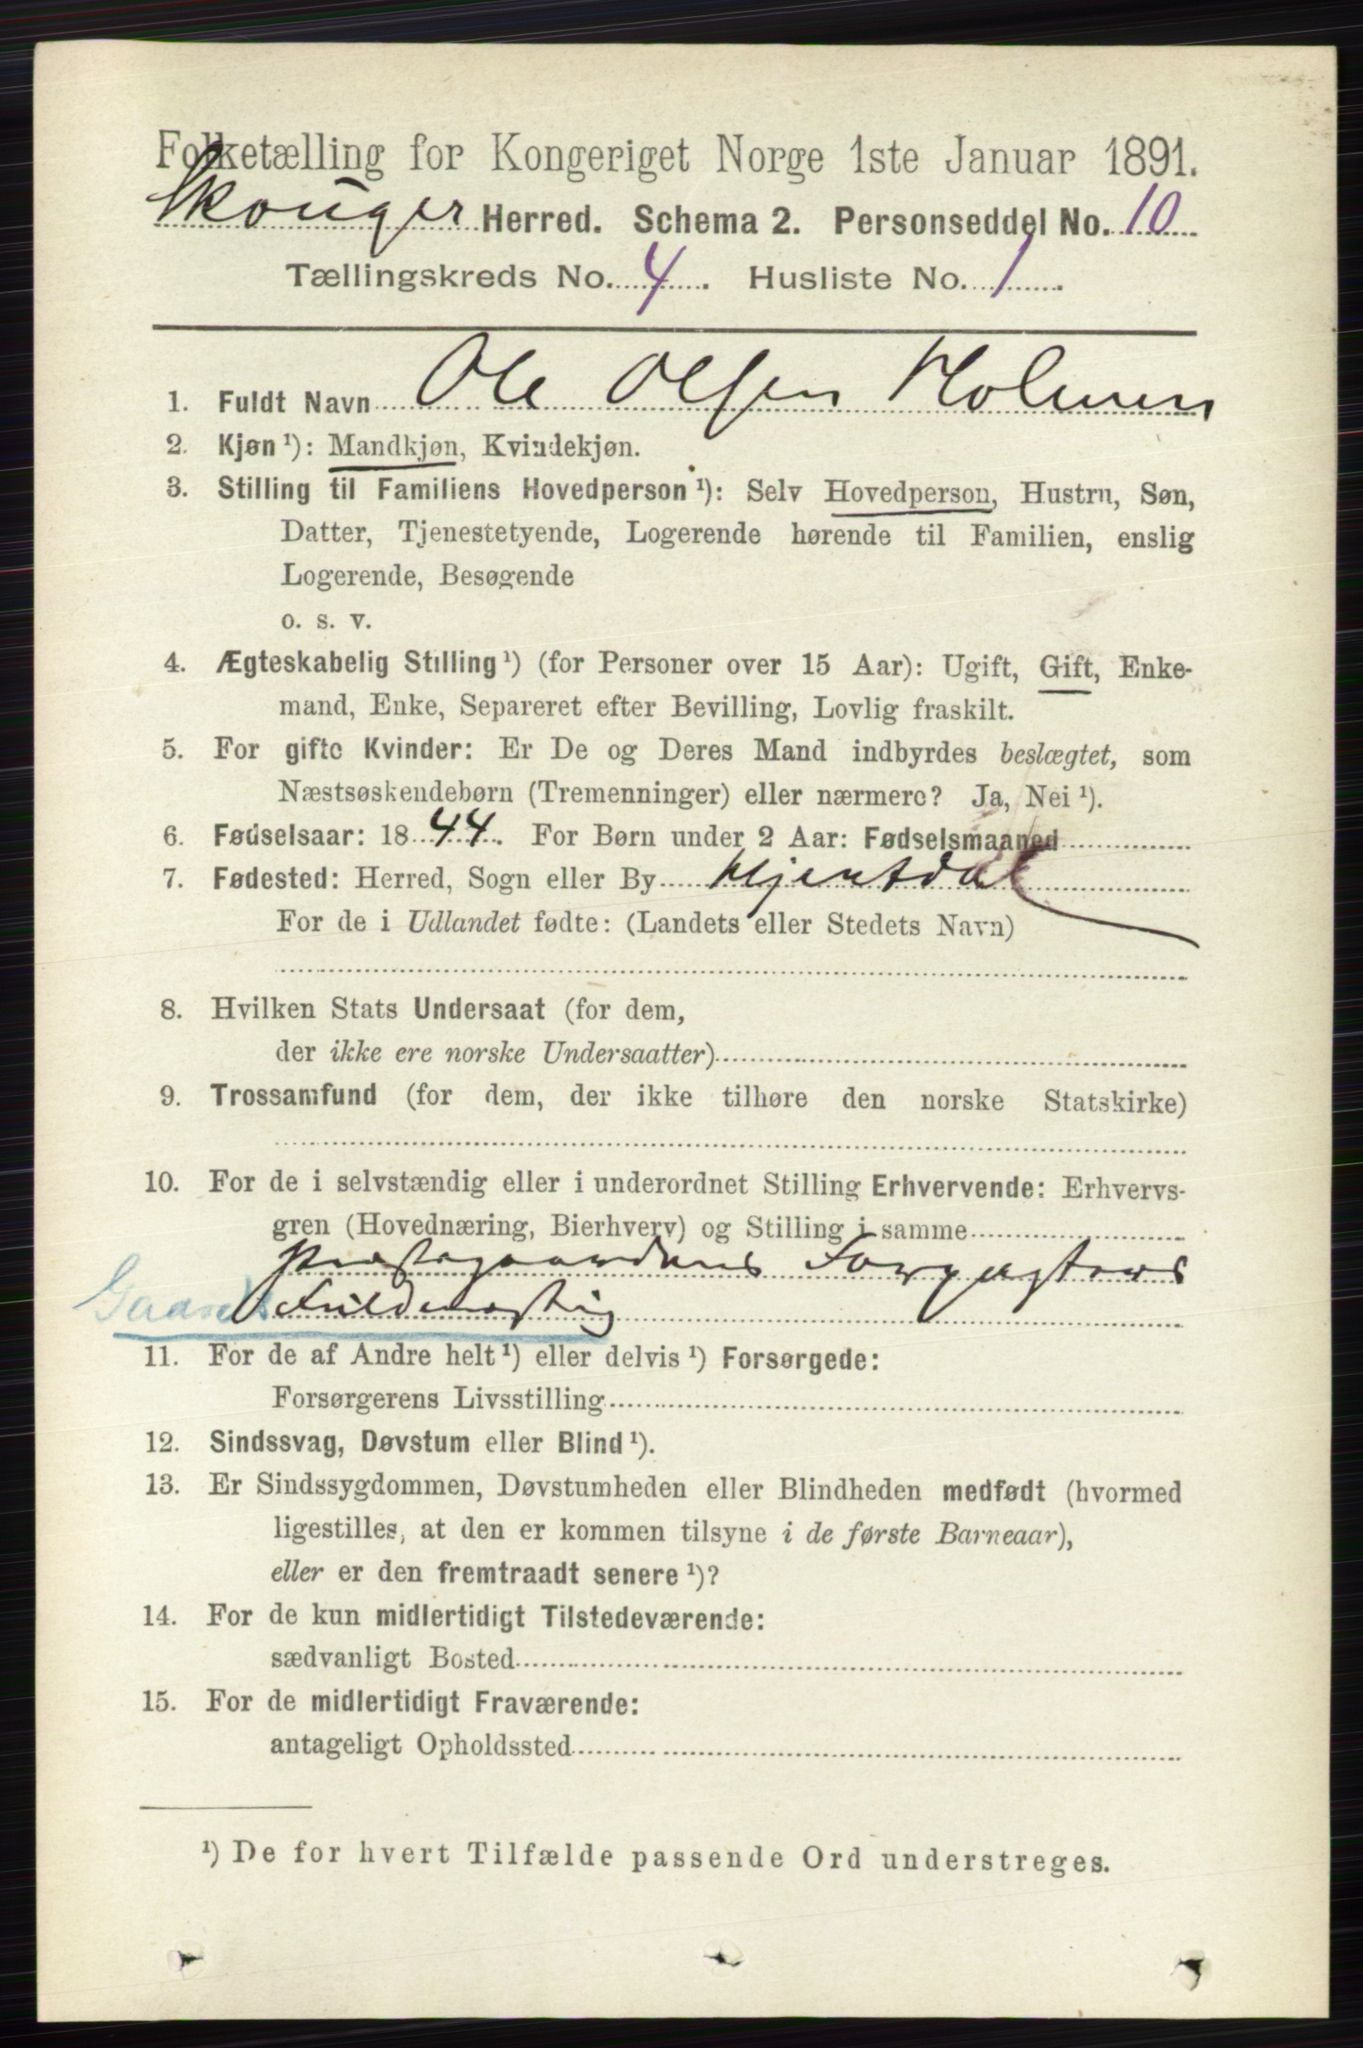 Folketælling for Kongeriget Norge 1ste Januar 1891.
Skouger Herred. Schema 2. Personseddel No. 10
Tællingskreds No. 4. Husliste No. 1.
1. Fuldt Navn Ole Olsen Holmen
2. Kjøn¹): Mandkjøn, Kvindekjøn.
3. Stilling til Familiens Hovedperson¹): Selv Hovedperson, Hustru, Søn,
Datter, Tjenestetyende, Logerende hørende til Familien, enslig
Logerende, Besøgende
o. s. v.
4. Ægteskabelig Stilling¹) (for Personer over 15 Aar): Ugift, Gift, Enke-
mand, Enke, Separeret efter Bevilling, Lovlig fraskilt.
5. For gifte Kvinder: Er De og Deres Mand indbyrdes beslægtet, som
Næstsøskendebørn (Tremenninger) eller nærmere? Ja, Nei¹).
6. Fødselsaar: 1844. For Børn under 2 Aar: Fødselsmaaned
7. Fødested: Herred, Sogn eller By Hjertdal
For de i Udlandet fødte: (Landets eller Stedets Navn)
8. Hvilken Stats Undersaat (for dem,
der ikke ere norske Undersaatter)
9. Trossamfund (for dem, der ikke tilhøre den norske Statskirke)
10. For de i selvstændig eller i underordnet Stilling Erhvervende: Erhvervs-
gren (Hovednæring, Bierhverv) og Stilling i samme
Præstegaardens Forpagters
Gaards Fuldmægtig
11. For de af Andre helt¹) eller delvis¹) Forsørgede:
Forsørgerens Livsstilling
12. Sindssvag, Døvstum eller Blind¹).
13. Er Sindssygdommen, Døvstumheden eller Blindheden medfødt (hvormed
ligestilles, at den er kommen tilsyne i de første Barneaar),
eller er den fremtraadt senere¹)?
14. For de kun midlertidigt Tilstedeværende:
sædvanligt Bosted
15. For de midlertidigt Fraværende:
antageligt Opholdssted
¹) De for hvert Tilfælde passende Ord understreges.